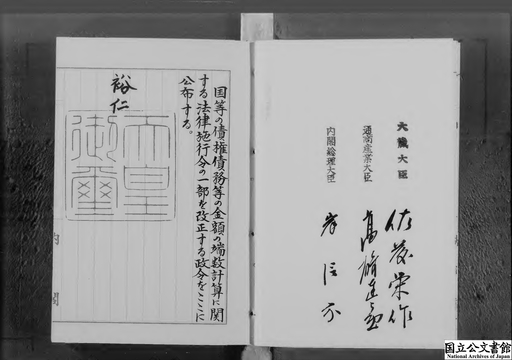 国等の債権債務等の金額の端数計算に関
する法律施行令の一部を改正する政令をここに
公布する。
裕仁
天皇
御璽
内閣
大蔵大臣
佐藤栄作
通商産業大臣
髙碕達之助
内閣総理大臣
岸信介
国立公文書館
National Archives of Japan